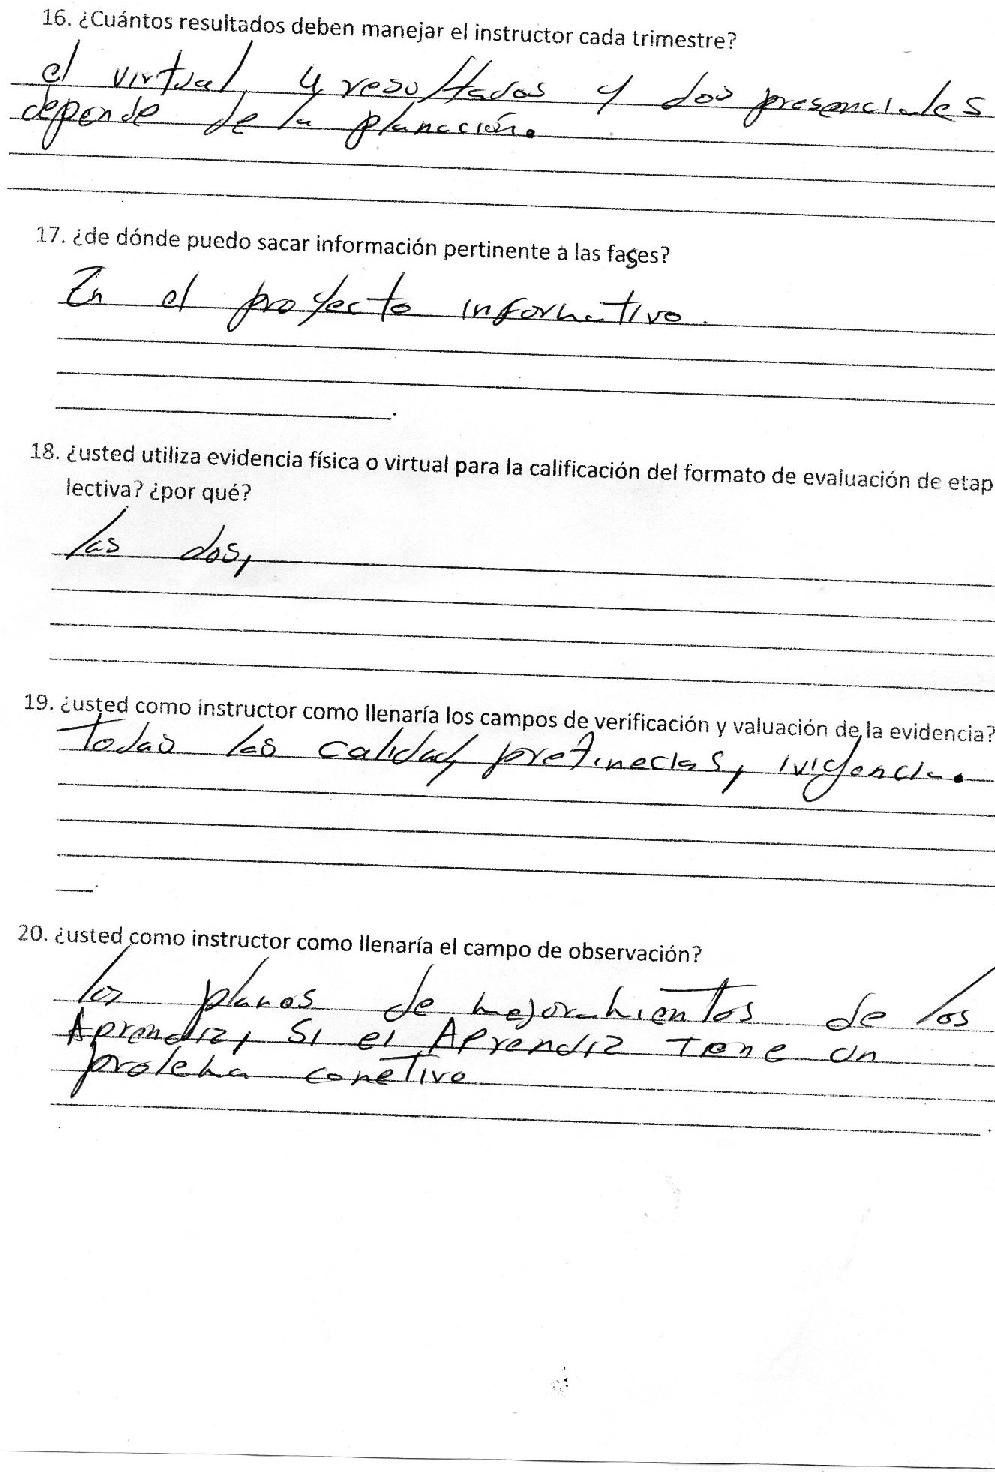 16. ¿Cuántos resultados deben manejar el instructor cada trimestre?
el virtual, 4 resultados y dos presenciales
depende de la planeción.
17. ¿de dónde puedo sacar información pertinente a las fases?
En el proyecto informativo.
18. ¿usted utiliza evidencia física o virtual para la calificación del formato de evaluación de etap
lectiva? ¿por qué?
las dos,
19. ¿usted como instructor como llenaría los campos de verificación y valuación de la evidencia?
Todas las calidad, pretinecias,
20. ¿usted como instructor como llenaría el campo de observación?
los planes de mejoramientos de los
Aprendiz, si el Aprendiz Tene un